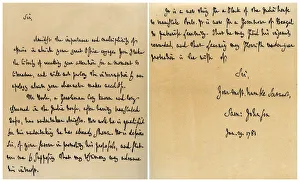 Sir
Amidst the importance and multiplicity of
affairs in which your great Office engages you I take
the liberty of recalling your attention for a moment to
literature, and will not prolong the interruption by an
apology which your character makes needless.
Mr Hoole, a Gentleman long known and long
esteemed in the India house, after having translated
Tasso, has undertaken Ariosto. How well he is qualified
for his undertaking he has already shown. He is desirous
Sir, of your favour in promoting his proposals, and flatters
me by supposing that my testimony may advance
his interest.
It is a new thing for a Clerk of the India House
to translate Poets. It is new for a Governour of Bengal
to patronize learning. That he may find his ingenuity
rewarded, and that learning may flourish under your
protection is the wish of
Sir,
Your most humble servant
Sam: Johnson
Jan. 29. 1781